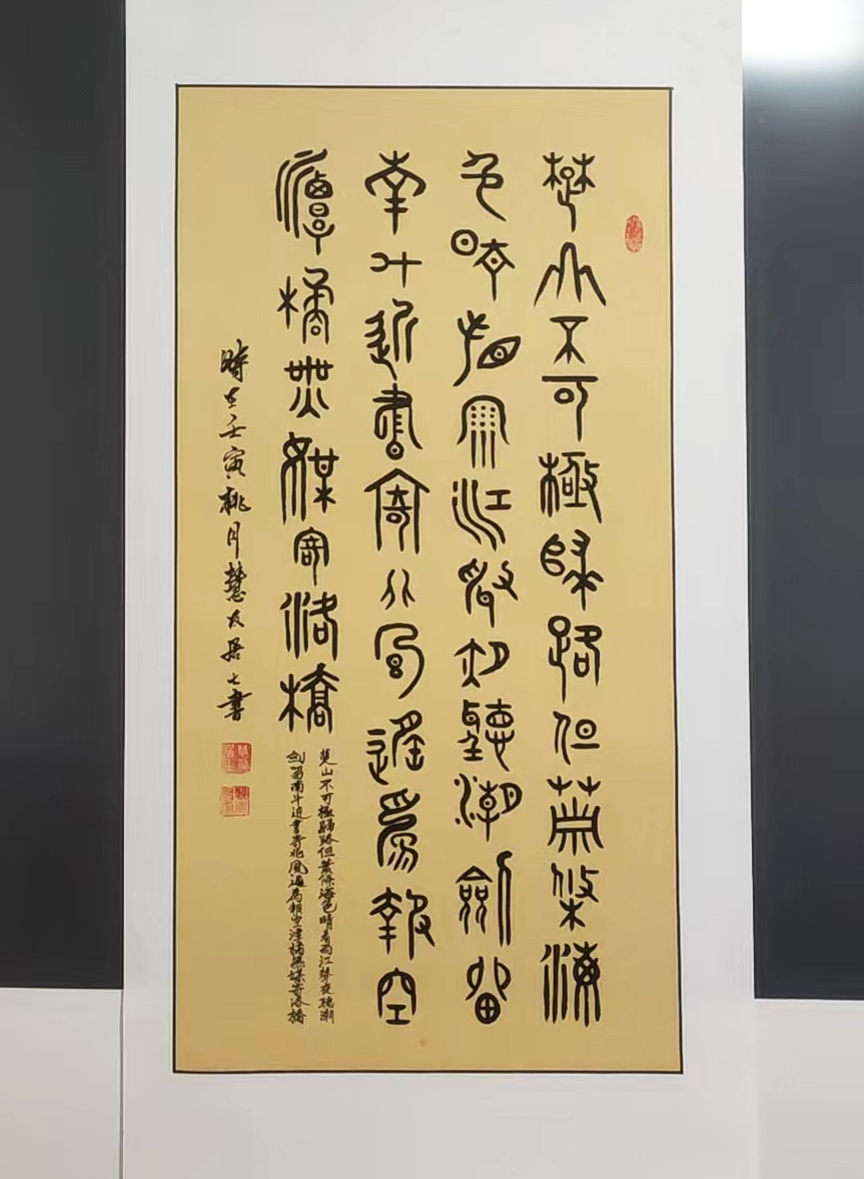 楚山不可極歸路但蕭條海
色晴看雨江聲夜聽潮劍留
南斗近書寄北風遙為報空
潭橘無媒寄洛橋
楚山不可極歸路但蕭條海色晴看雨江聲夜聽潮
劍留南斗近書寄北風遙為報空潭橘無媒寄洛橋
時在壬寅桃月慧友居士書